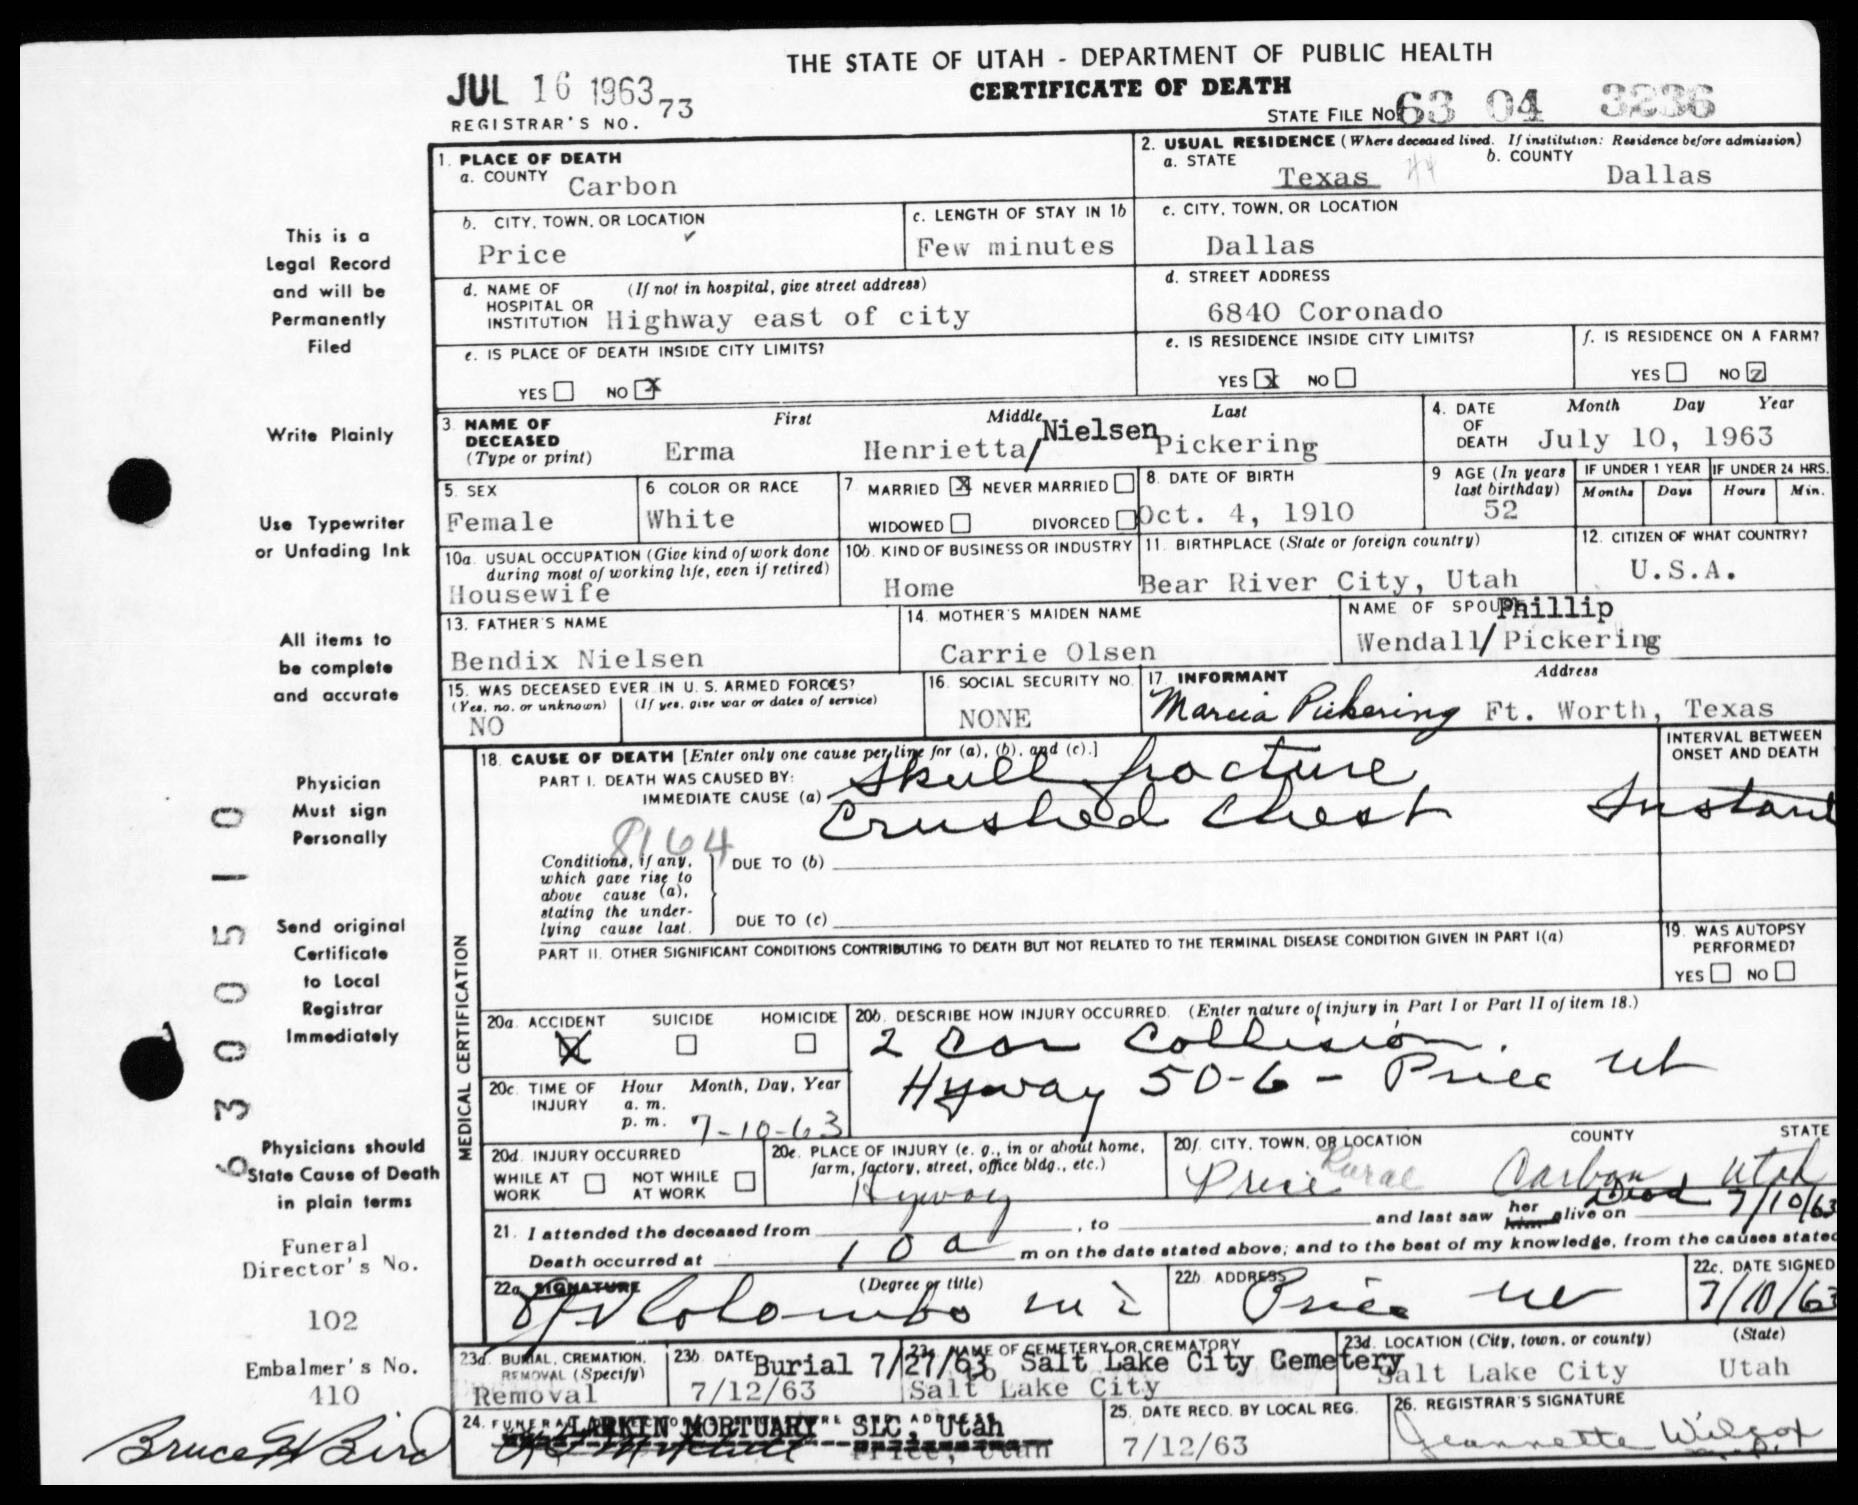 THE STATE OF UTAH - DEPARTMENT OF PUBLIC HEALTH
CERTIFICATE OF DEATH
JUL 16 1963 73
REGISTRAR'S NO.
STATE FILE NO. 63 04 3236
1. PLACE OF DEATH
a. COUNTY Carbon
2. USUAL RESIDENCE (Where deceased lived. If institution: Residence before admission)
a. STATE Texas b. COUNTY Dallas
b. CITY, TOWN, OR LOCATION Price
c. LENGTH OF STAY IN 1b Few minutes
c. CITY, TOWN, OR LOCATION Dallas
d. NAME OF HOSPITAL OR INSTITUTION (If not in hospital, give street address) Highway east of city
d. STREET ADDRESS 6840 Coronado
e. IS PLACE OF DEATH INSIDE CITY LIMITS?
YES NO X
e. IS RESIDENCE INSIDE CITY LIMITS?
YES X NO
f. IS RESIDENCE ON A FARM?
YES NO
3. NAME OF DECEASED (Type or print)
First Middle Last
Erma Henrietta/ Nielsen Pickering
4. DATE OF DEATH Month Day Year
July 10, 1963
5. SEX Female
6. COLOR OR RACE White
7. MARRIED X NEVER MARRIED
WIDOWED DIVORCED
8. DATE OF BIRTH Oct. 4, 1910
9 AGE (In years last birthday) 52
IF UNDER 1 YEAR Months Days
IF UNDER 24 HRS. Hours Min.
10a. USUAL OCCUPATION (Give kind of work done during most of working life, even if retired)
Housewife
10b. KIND OF BUSINESS OR INDUSTRY
Home
11. BIRTHPLACE (State or foreign country)
Bear River City, Utah
12. CITIZEN OF WHAT COUNTRY?
U.S.A.
13. FATHER'S NAME
Bendix Nielsen
14. MOTHER'S MAIDEN NAME
Carrie Olsen
NAME OF SPOUSE Phillip
Wendall/Pickering
15. WAS DECEASED EVER IN U.S. ARMED FORCES?
(Yes, no, or unknown) (If yes, give war or dates of service)
NO
16. SOCIAL SECURITY NO.
NONE
17. INFORMANT Address
Marcia Pickering Ft. Worth, Texas
MEDICAL CERTIFICATION
18. CAUSE OF DEATH [Enter only one cause per line for (a), (b), and (c).]
INTERVAL BETWEEN ONSET AND DEATH
PART I. DEATH WAS CAUSED BY:
IMMEDIATE CAUSE (a) Skull fracture
Crushed Chest Instant
8164
Conditions, if any, which gave rise to above cause (a), stating the underlying cause last.
DUE TO (b)
DUE TO (c)
PART II. OTHER SIGNIFICANT CONDITIONS CONTRIBUTING TO DEATH BUT NOT RELATED TO THE TERMINAL DISEASE CONDITION GIVEN IN PART I(a)
19. WAS AUTOPSY PERFORMED?
YES NO
20a. ACCIDENT X SUICIDE HOMICIDE
20b. DESCRIBE HOW INJURY OCCURRED. (Enter nature of injury in Part I or Part II of item 18.)
2 Car Collision.
Hyway 50-6 - Price Ut
20c. TIME OF INJURY Hour a. m. p. m. Month, Day, Year
7-10-63
20d. INJURY OCCURRED
WHILE AT WORK NOT WHILE AT WORK
20e. PLACE OF INJURY (e. g., in or about home, farm, factory, street, office bldg., etc.)
Hyway
20f. CITY, TOWN, OR LOCATION COUNTY STATE
Price Rural Carbon Utah
21. I attended the deceased from , to and last saw her him alive on Dead 7/10/63
Death occurred at 10 a m on the date stated above; and to the best of my knowledge, from the causes stated
22a. SIGNATURE (Degree or title)
Colombo
22b. ADDRESS
Price Ut
22c. DATE SIGNED
7/10/63
23a. BURIAL, CREMATION, REMOVAL (Specify)
Removal
23b. DATE Burial 7/27/63
7/12/63
23c. NAME OF CEMETERY OR CREMATORY
Salt Lake City Cemetery
Salt Lake City
23d. LOCATION (City, town, or county) (State)
Salt Lake City Utah
24. FUNERAL
LARKIN MORTUARY SLC, Utah
Price, Utah
25. DATE RECD. BY LOCAL REG.
7/12/63
26. REGISTRAR'S SIGNATURE
Jeannette Wilcox
This is a
Legal Record
and will be
Permanently
Filed
Write Plainly
Use Typewriter
or Unfading Ink
All items to
be complete
and accurate
Physician
Must sign
Personally
Send original
Certificate
to Local
Registrar
Immediately
Physicians should
State Cause of Death
in plain terms
Funeral
Director's No.
102
Embalmer's No.
410
Bruce H Bird
6300510